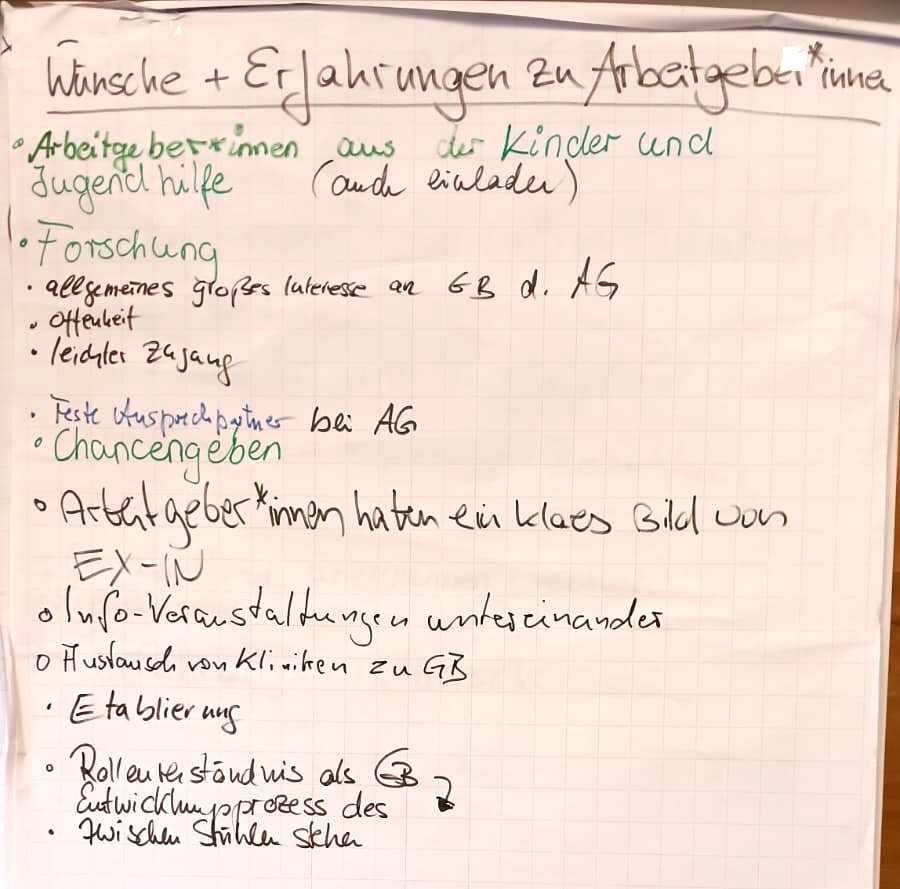 Wünsche + Erfahrungen zu Arbeitgeber*innen
• Arbeitgeber*innen aus der Kinder und
Jugendhilfe (auch einladen)
• Forschung
• allgemeines großes Interesse an GB d. AG
• Offenheit
• leichter Zugang
• Feste Ansprechpartner bei AG
• Chancengeben
• Arbeitgeber*innen haben ein klares Bild von
EX-IN
• Info-Veranstaltungen untereinander
• Austausch von Kliniken zu GB
• Etablierung
• Rollenverständnis als GB
Entwicklungsprozess des
• zwischen Stühlen stehen